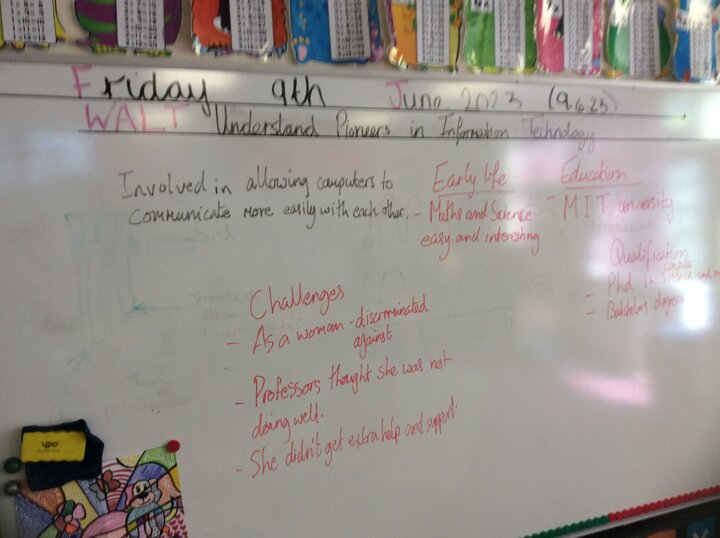 Friday 9th June 2023 (9.6.23)
WALT Understand Pioneers in Information Technology
Involved in allowing computers to
communicate more easily with each other.
Early life
- Maths and Science
easy and interesting
Education
- M.I.T. university
Qualification
- Phd in computer Science and
- Batchelors degrees
Challenges
- As a woman - discriminated
against
- Professors thought she was not
doing well.
- She didn't get extra help and support.
ypo